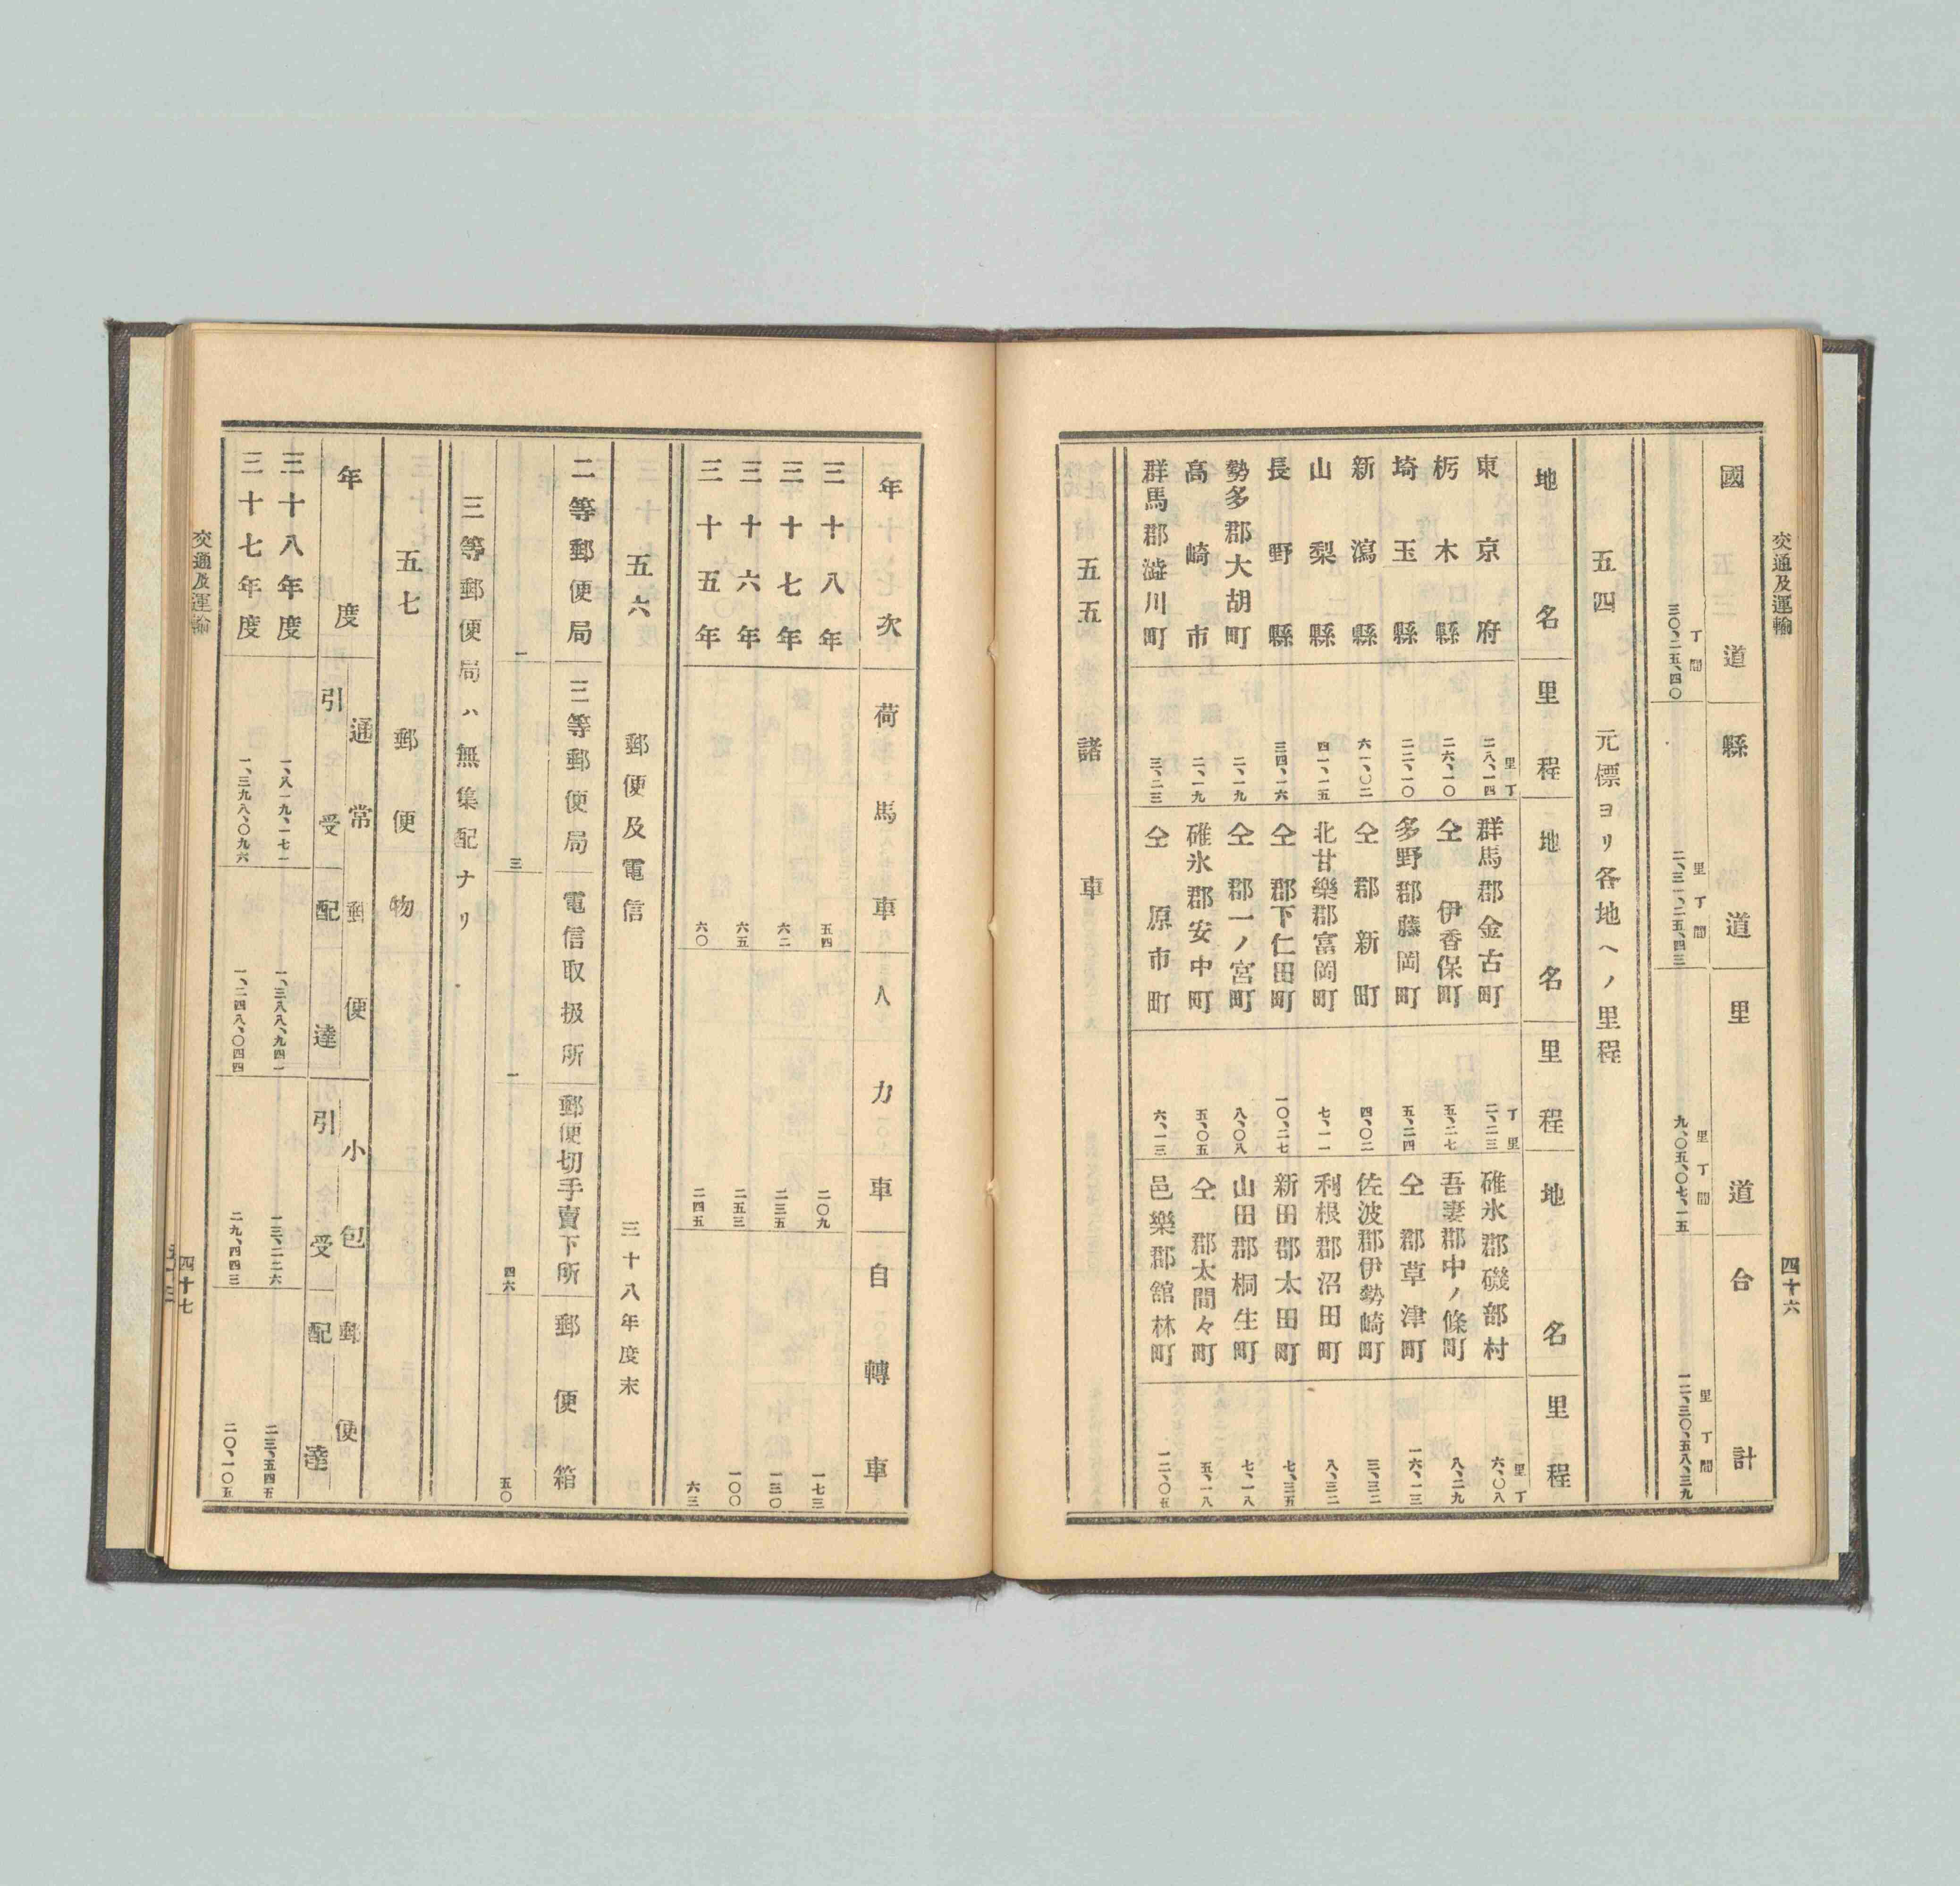 交通及運輸
四十六
國道
縣道
里道
合計
丁 間
三〇、二五、四〇
里 丁 間
二、三一、二五、四三
里 丁 間
九、〇五、〇七、一五
里 丁 間
一二、三〇、五八、三九
五四 元標ヨリ各地ヘノ里程
地名 里程 地名 里程 地名 里程
里 丁
丁 里
里 丁
東京府 二八、一四 群馬郡金古町 二、二三 碓氷郡磯部村 六、〇八
栃木縣 二六、一〇 仝 伊香保町 五、二七 吾妻郡中ノ條町 八、二九
埼玉縣 二二、一〇 多野郡藤岡町 五、二四 仝郡草津町 一六、一三
新瀉縣 六一、〇二 仝郡新町 四、〇二 佐波郡伊勢崎町 三、三二
山梨縣 四一、一五 北甘樂郡富岡町 七、一一 利根郡沼田町 八、三二
長野縣 三四、一六 仝郡下仁田町 一〇、二七 新田郡太田町 七、三五
勢多郡大胡町 二、一九 仝郡一ノ宮町 八、〇八 山田郡桐生町 七、一八
高崎市 二、一九 碓氷郡安中町 五、〇五 仝郡太間々町 五、一八
群馬郡澁川町 三、二三 仝原市町 六、一三 邑樂郡舘林町 一二、〇五
五五 諸車
年次 荷馬車 人力車 自轉車
三十八年 五四 二〇九 一七三
三十七年 六二 二三五 一三〇
三十六年 六五 二五三 一〇〇
三十五年 六〇 二四五 六三
五六 郵便及電信 三十八年度末
二等郵便局 三等郵便局 電信取扱所 郵便切手賣下所 郵便箱
一 三 一 四六 五〇
三等郵便局ハ無集配ナリ
五七 郵便物
年度 通常郵便 小包郵便
引受 配達 引受 配達
三十八年度 一、八一九、一七一 一、三八八、九四一 一三、二二六 二三、五四五
三十七年度 一、三九八、〇九六 一、二四八、〇四四 二九、四四三 二〇、一〇五
交通及運輸
四十七